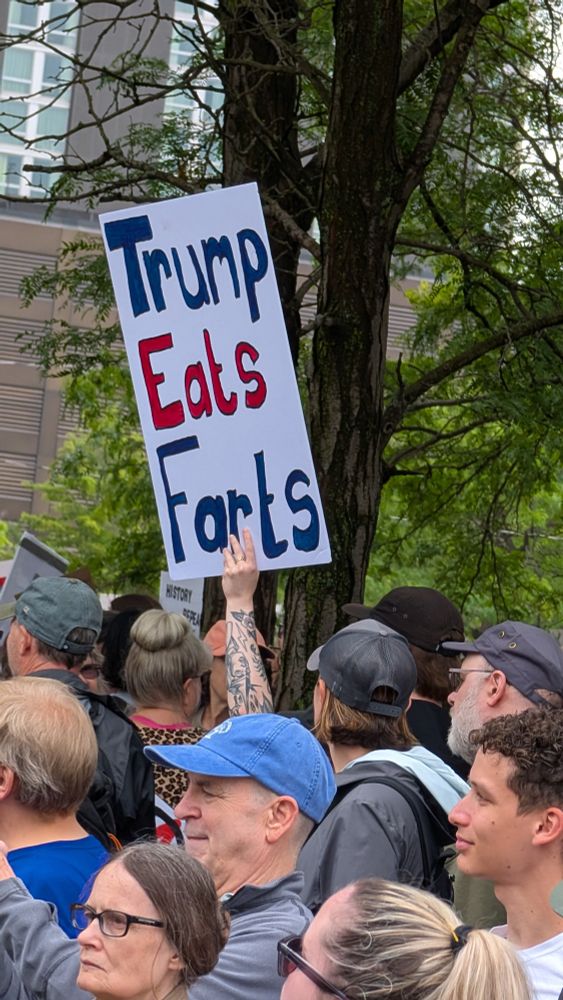 Trump
Eats
Farts
HISTORY
REPEA